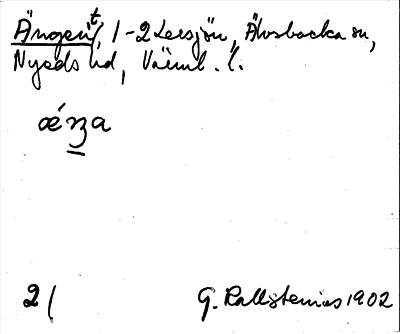 Ängen^t, 1-2 Lersjön, Älvsbacka sn,
Nyeds hd, Värml. l.
ǽŋa
2/ G. Kallstenius 1902